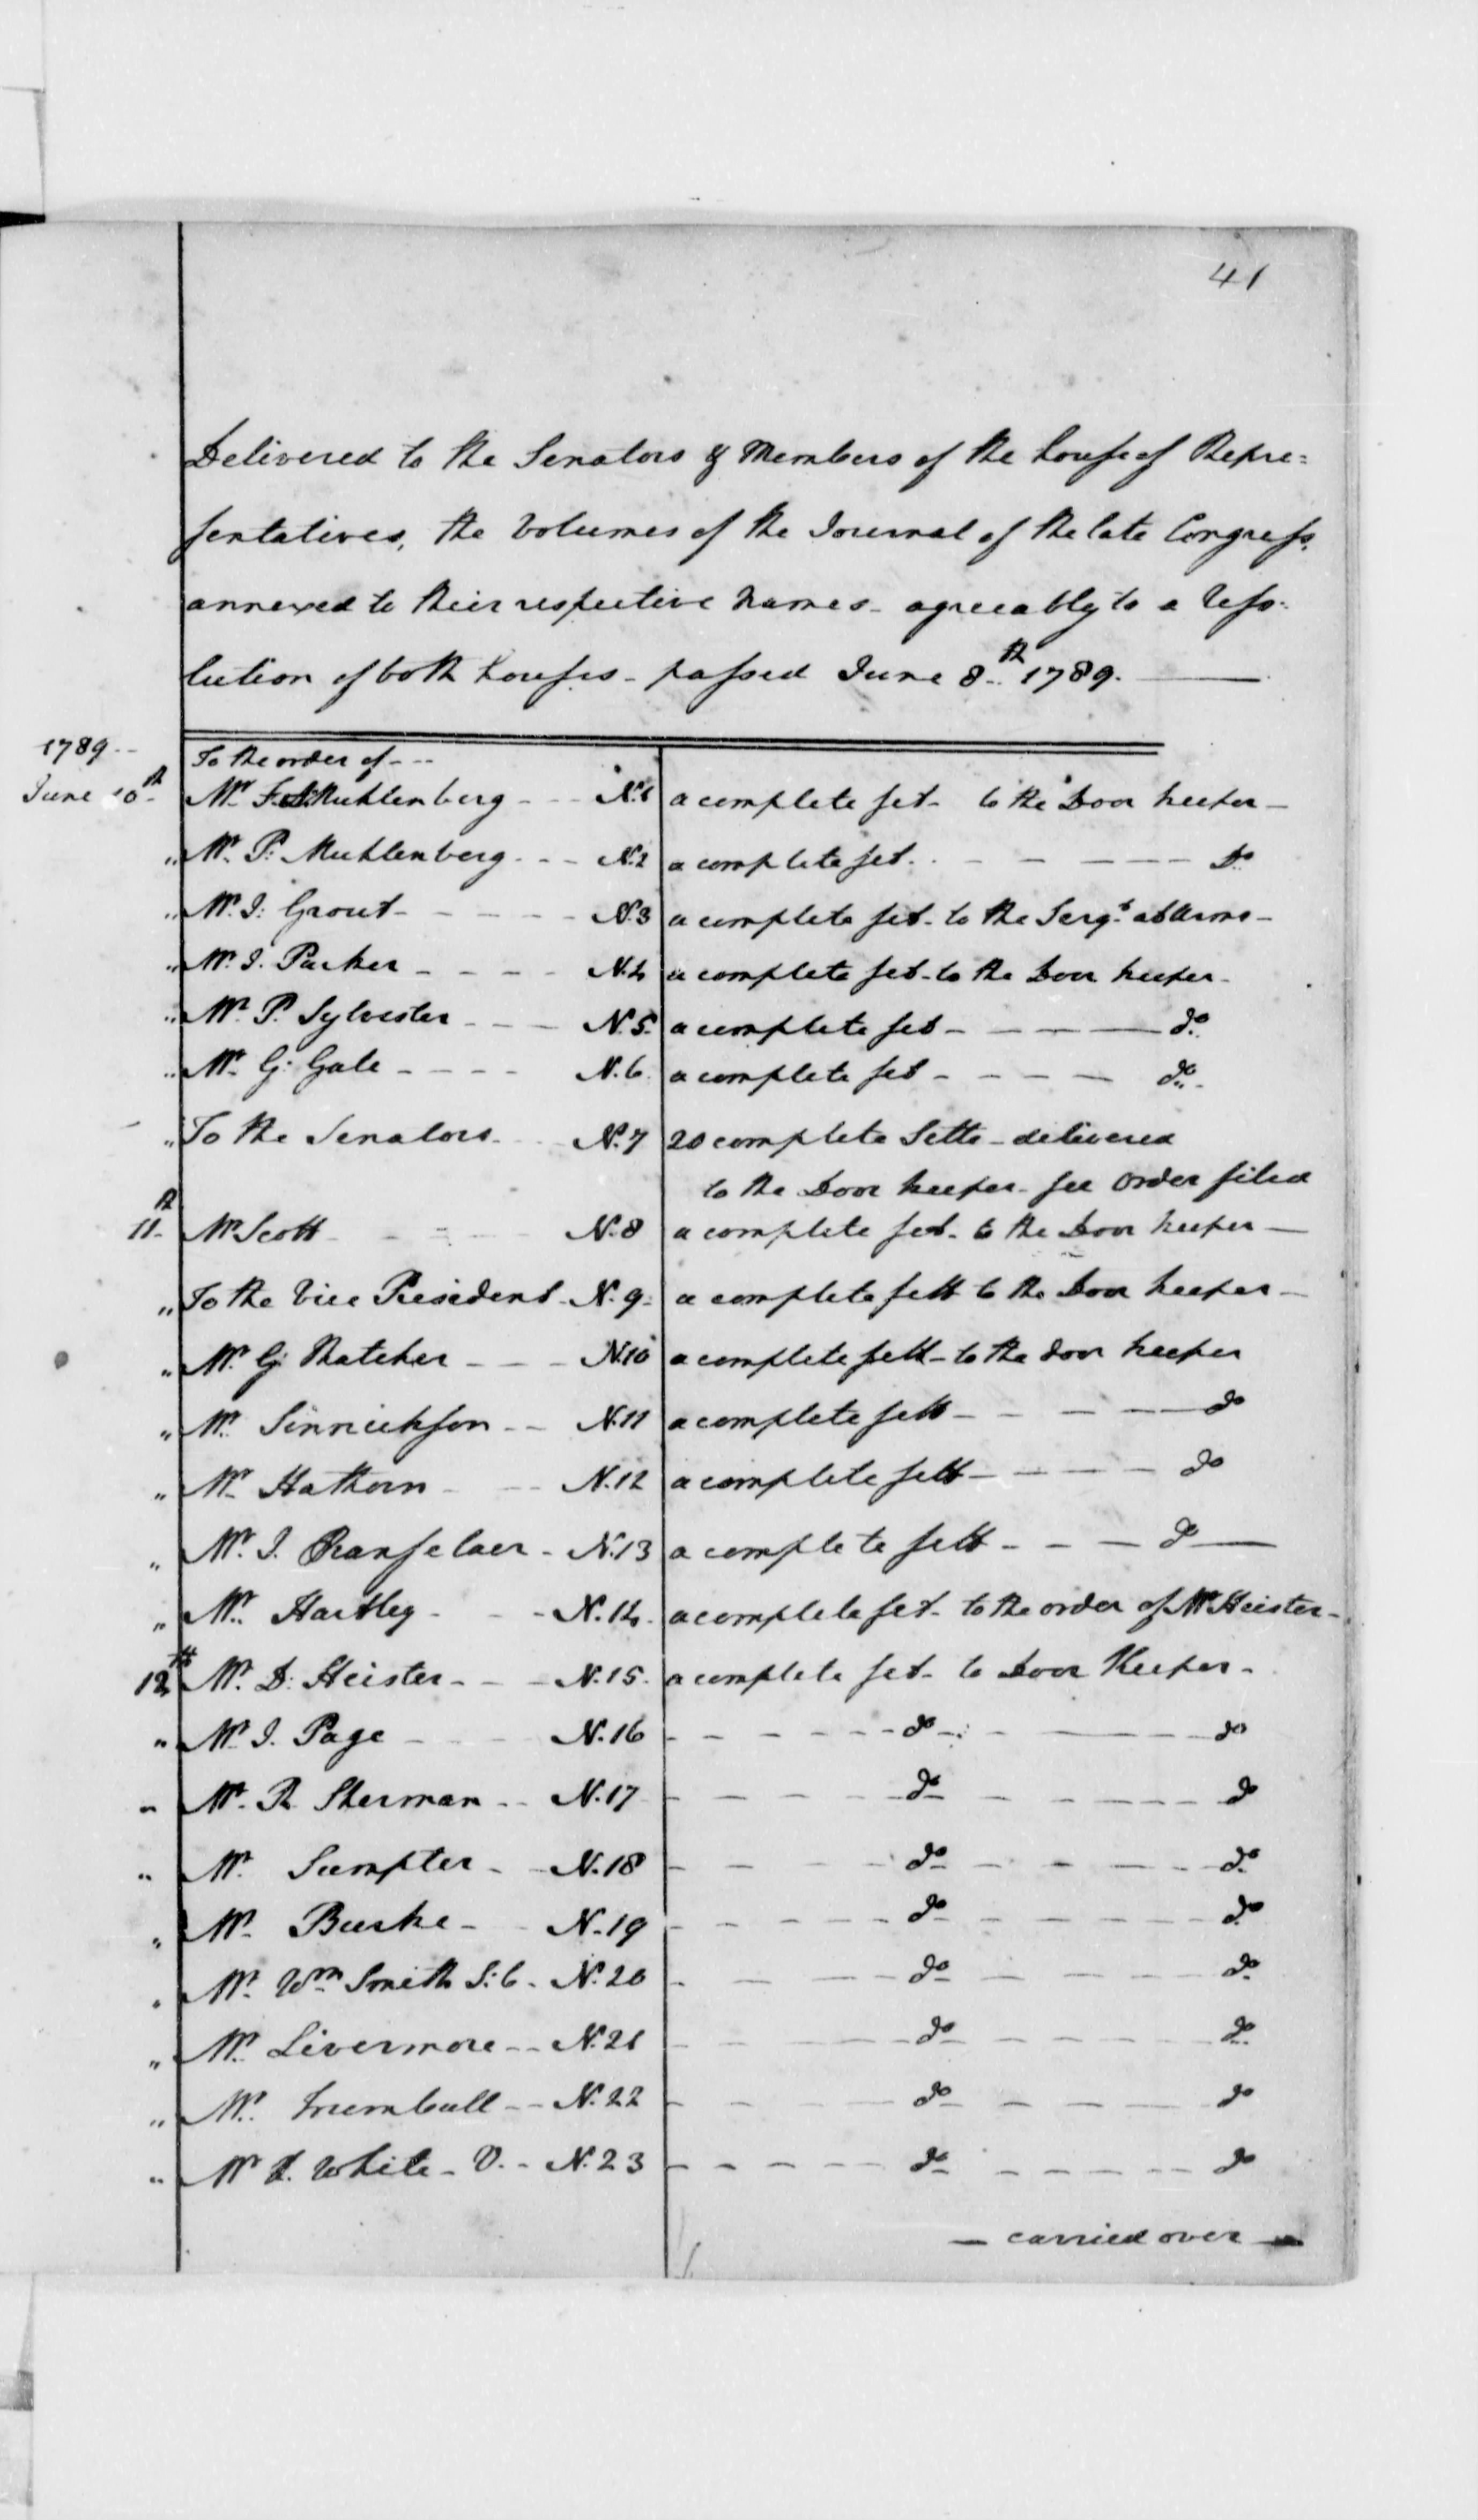 41
Delivered to the Senators & Members of the house of Repre=
sentatives, the Volumes of the Journal of the late Congress,
annexed to their respective names - agreeably to a Reso-
lution of both houses - passed June 8th 1789. —
1789 --
To the order of ---
June 10th Mr F. A. Muhlenberg - - - N.1 a complete set - to the Door keeper -
" Mr P: Muhlenberg - - - N.2 a complete set - - - - Do
" Mr. J: Grout - - - - N.3 a complete set - to the Sergt at Arms -
" Mr. J. Parker - - - - N.4 a complete set - to the Door keeper -
" Mr P. Sylvester - - - N.5. a complete set - - - - do
" Mr G: Gale - - - - N.6. a complete set - - - - do
" To the Senators - - N.7 20 complete Setts - delivered
to the Door keeper - see Order filed
11th Mr Scott - - - N.8 a complete set - to the Door keeper —
" To the Vice President - N.9 - a complete sett to the Door keeper -
" Mr. G: Thatcher - - - N.10 a complete sett - to the door keeper
" Mr. Sinnickson - - N.11 a complete sett - - - - do
" Mr Hathorn - - - N.12 a complete sett - - - - do
" Mr. J. Ranselaer - N.13 a complete sett - - - do —
" Mr. Hartley - - - N.14. a complete set - to the order of Mr Heister -
12th Mr. D: Heister - - - N.15. a complete set - to Door Keeper -
" Mr J. Page - - - N.16 - - - - do - - - - do
" Mr. R Sherman - - N.17 - - - - do - - - - do
" Mr Sumpter - - N.18 - - - - do - - - - do
" Mr. Burke - - N.19 - - - - do - - - - do
" Mr. Wm Smith S: C - N.20 - - - - do - - - - do
" Mr. Livermore - - N.21 - - - - do - - - - do
" Mr. Trumbull - - N.22 - - - - do - - - - do
" Mr A. White - V. - N.23 - - - - do - - - - do
— carried over —